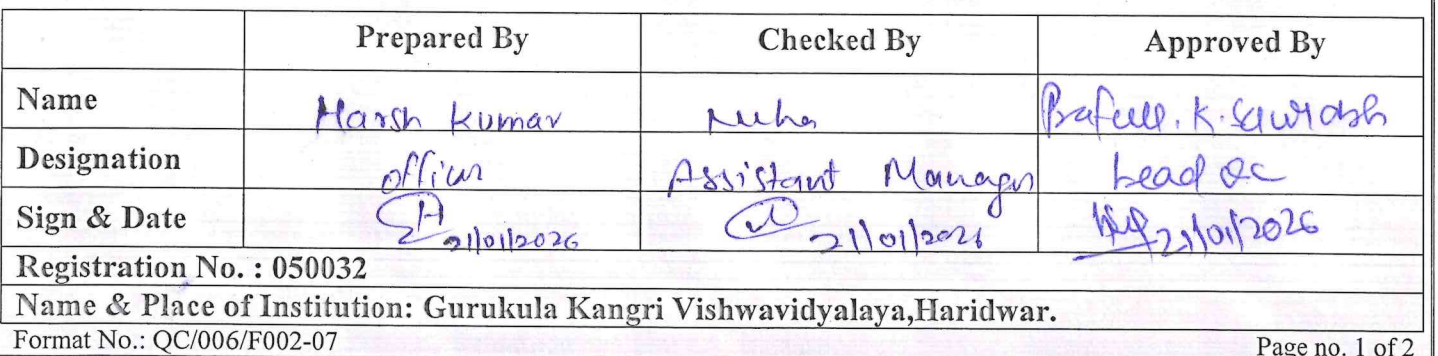 Prepared By Checked By Approved By
Name Harsh Kumar Neha Prafull. K. Saurabh
Designation officer Assistant Manager Lead QC
Sign & Date 21/01/2026 21/01/2026 21/01/2026
Registration No. : 050032
Name & Place of Institution: Gurukula Kangri Vishwavidyalaya,Haridwar.
Format No.: QC/006/F002-07
Page no. 1 of 2